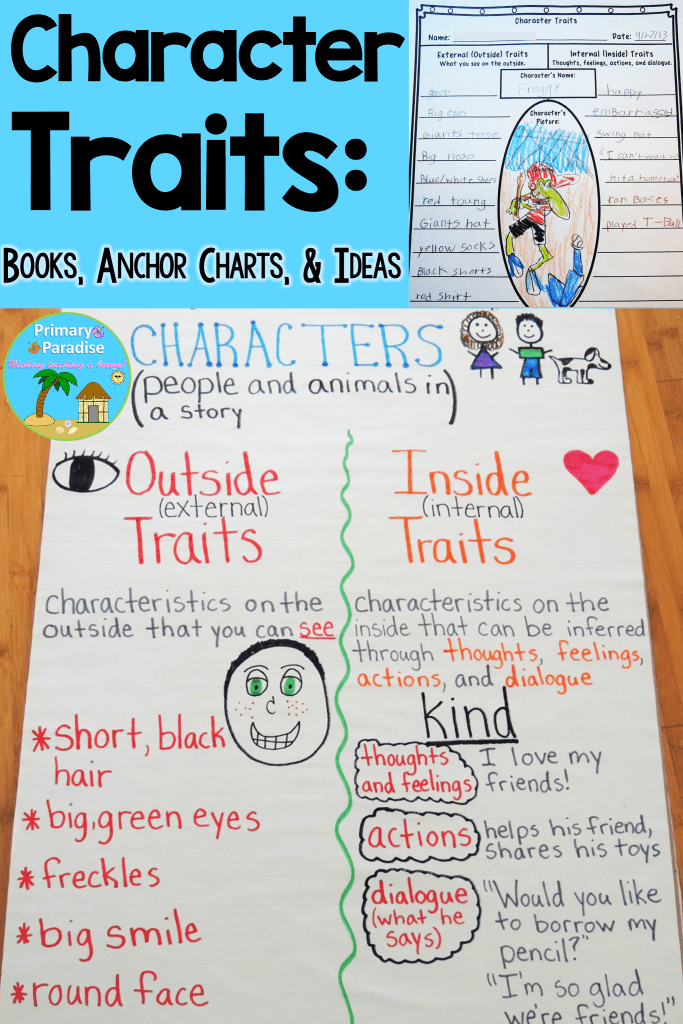 Character
Traits:
Books, Anchor Charts, & Ideas
Character Traits
Name: Date: 9/27/13
External (Outside) Traits
What you see on the outside.
Internal (Inside) Traits
Thoughts, feelings, actions, and dialogue.
Character's Name:
Froggy
Character's
Picture:
green
Big eyes
Giants terse
Big noso
Blue/white shoes
red toung
Giants hat
yellow socks
Black shorts
red shirt
happy
embarrassed
swing Bat
"I can't wait to
hit a homerun"
ran Bases
played T-Ball
Primary
Paradise
Making teaching a breeze!
CHARACTERS
(people and animals in
a story)
Outside
(external)
Traits
Characteristics on the
outside that you can see
*short, black
hair
*big, green eyes
*freckles
*big smile
*round face
Inside
(internal)
Traits
Characteristics on the
inside that can be inferred
through thoughts, feelings,
actions, and dialogue
kind
thoughts
and feelings
I love my
friends!
actions
helps his friend,
shares his toys
dialogue
(what he
says)
"Would you like
to borrow my
pencil?"
"I'm so glad
we're friends!"